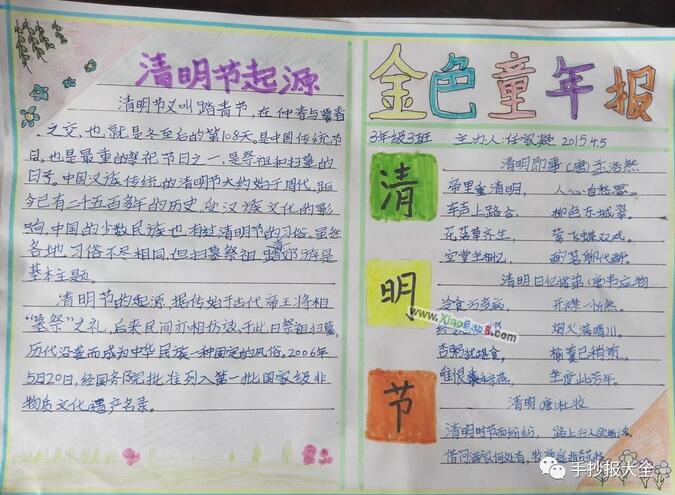 清明节起源
清明节又叫踏青节，在仲春与暮春
之交，也就是冬至后的第108天。是中国传统节
日，也是最重的祭祀节日之一，是祭祖和扫墓的
日子。中国汉族传统的清明节大约始于周代，距
今已有二千五百多年的历史。受汉族文化的影
响，中国的少数民族也有过清明节的习俗。虽然
各地习俗不尽相同，但扫墓祭祖、踏郊游是
基本主题。
清明节的起源，据传始于古代帝王将相
“墓祭”之礼，后来民间亦相仿效，于此日祭祖扫墓，
历代沿袭而成为中华民族一种固定的风俗。2006年
5月20日，经国务院批准列入第一批国家级非
物质文化遗产名录。
金色童年报
3年级3班 主办人：任家凝 2015.4.5
清
明
节
清明即事（唐）孟浩然
帝里重清明， 人心自愁思。
车声上路合， 柳色东城翠。
花落草齐生， 莺飞蝶双戏。
空堂坐相忆，
清明日忆诸弟 唐韦应物
冷食方多病， 开襟一忻然。
烟火满晴川。
杏粥犹堪食， 榆羹已稍煎。
唯恨乖亲燕， 坐度此芳年。
清明 唐杜牧
清明时节雨纷纷， 路上行人欲断魂。
借问酒家何处有，牧童遥指杏花村。
www.XiaoBao8.com
手抄报大全